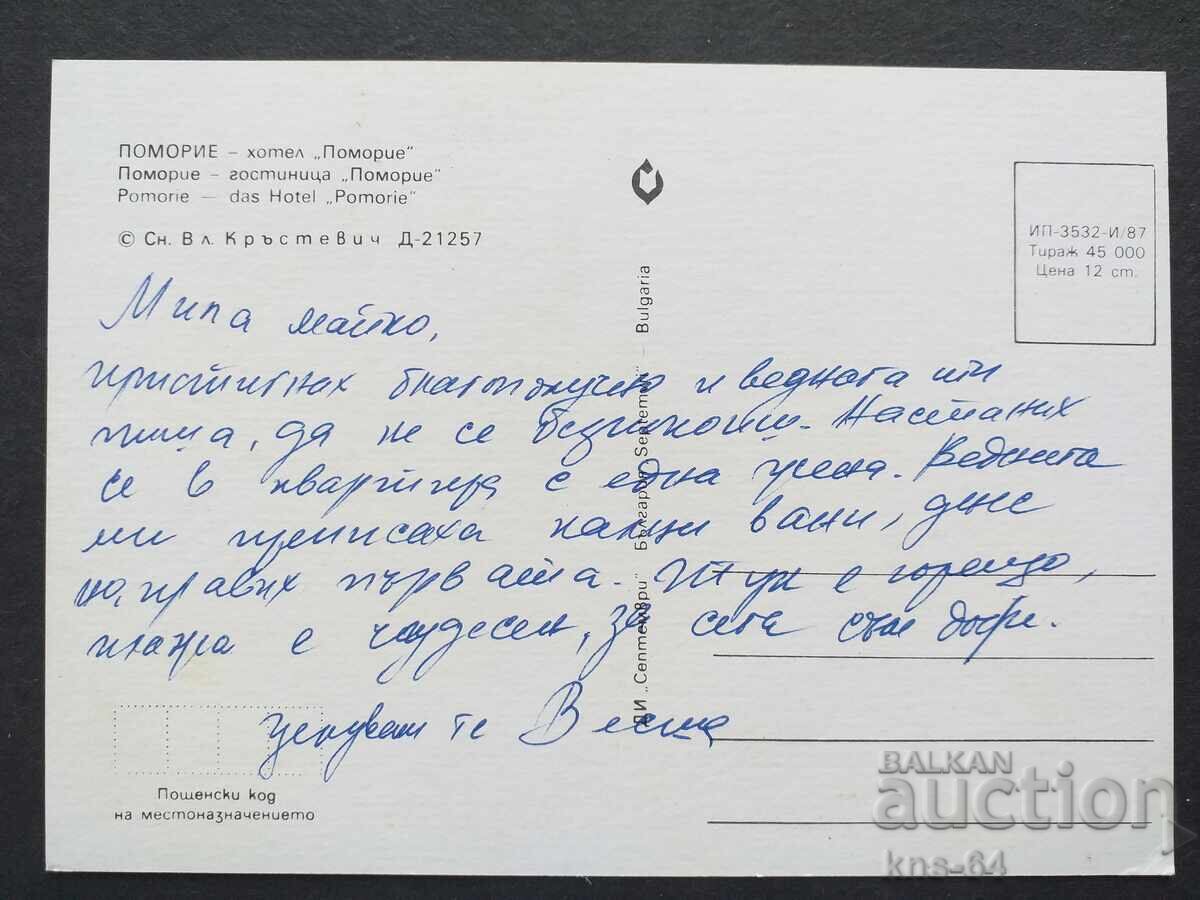 ПОМОРИЕ – хотел „Поморие“
Поморие – гостиница „Поморие“
Pomorie — das Hotel „Pomorie“
© Сн. Вл. Кръстевич Д-21257
ИП-3532-И/87
Тираж 45 000
Цена 12 ст.
ДИ „Септември“ България Septemvri — Bulgaria
Мила майко,
пристигнах благополучно и веднага ти
пиша, да не се безпокоиш. Настаних
се в квартира с една жена. Веднага
ми предписаха кални вани, днес
направих първата. Тук е горещо,
плажа е чудесен, за сега съм добре.
Целувам те Весна
Пощенски код
на местоназначението
BALKAN
auction
kns-64